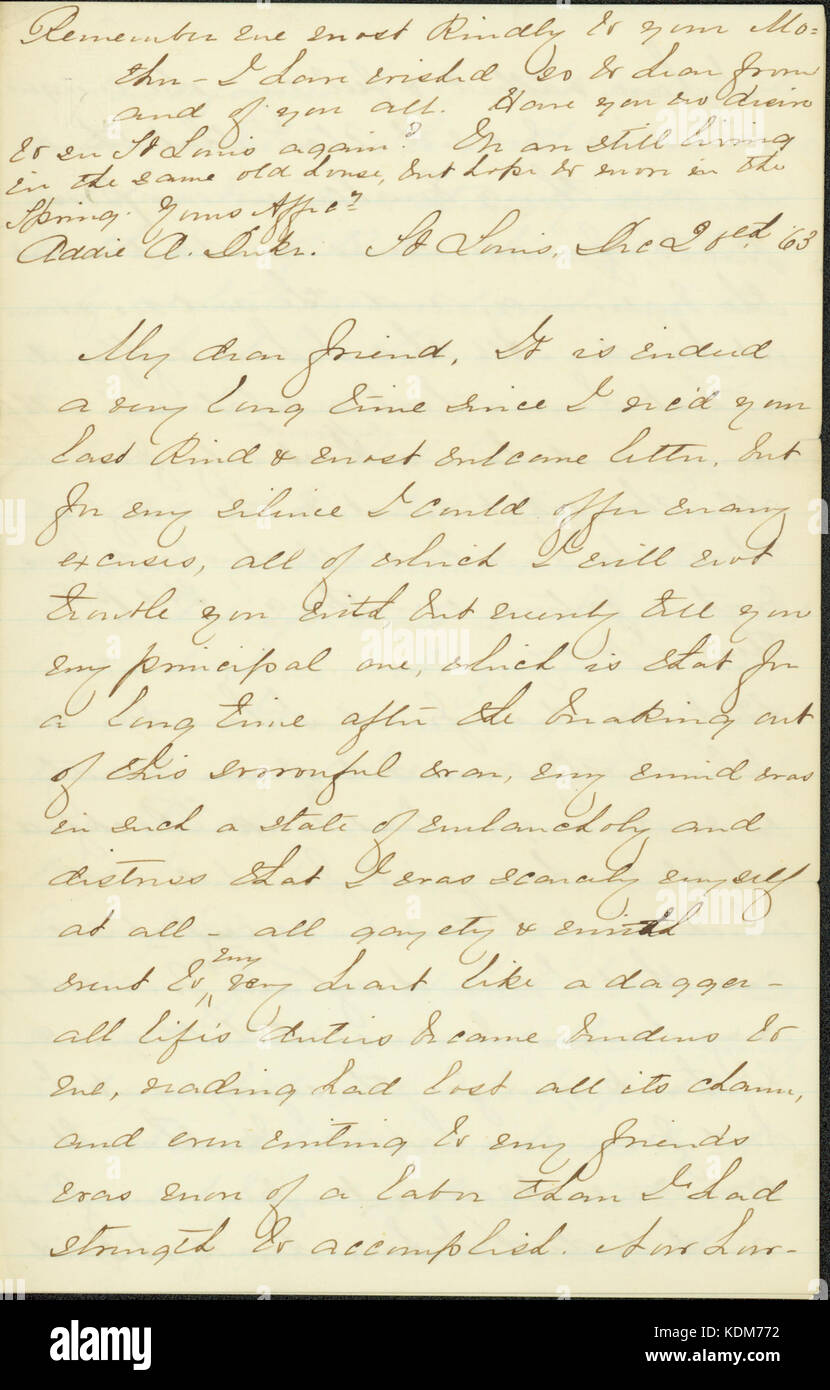 Remember me most kindly to your Mo=
ther - I have wished so to hear from
and of you all. Have you no desire
to see St Louis again? We are still living
in the same old house, but hope to move in the
Spring. Yours Affec'y
Addie A.       St Louis, Dec 28ed '63
My dear friend, It is indeed
a very long time since I rec'd your
last kind & most welcome letter, but
for my silence I could offer many
excuses, all of which I will not
trouble you with, but merely tell you
my principal one, which is that for
a long time after the breaking out
of this sorrowful war, my mind was
in such a state of melancholy and
distress that I was scarcely myself
at all - all gayety & mirth
went to my very heart like a dagger -
all life's duties became burdens to
me, reading had lost all its charm,
and even writing to my friends
was more of a labor than I had
strength to accomplish. Now how-
alamy
alamy
alamy
alamy
alamy
alamy
KDM772
www.alamy.com